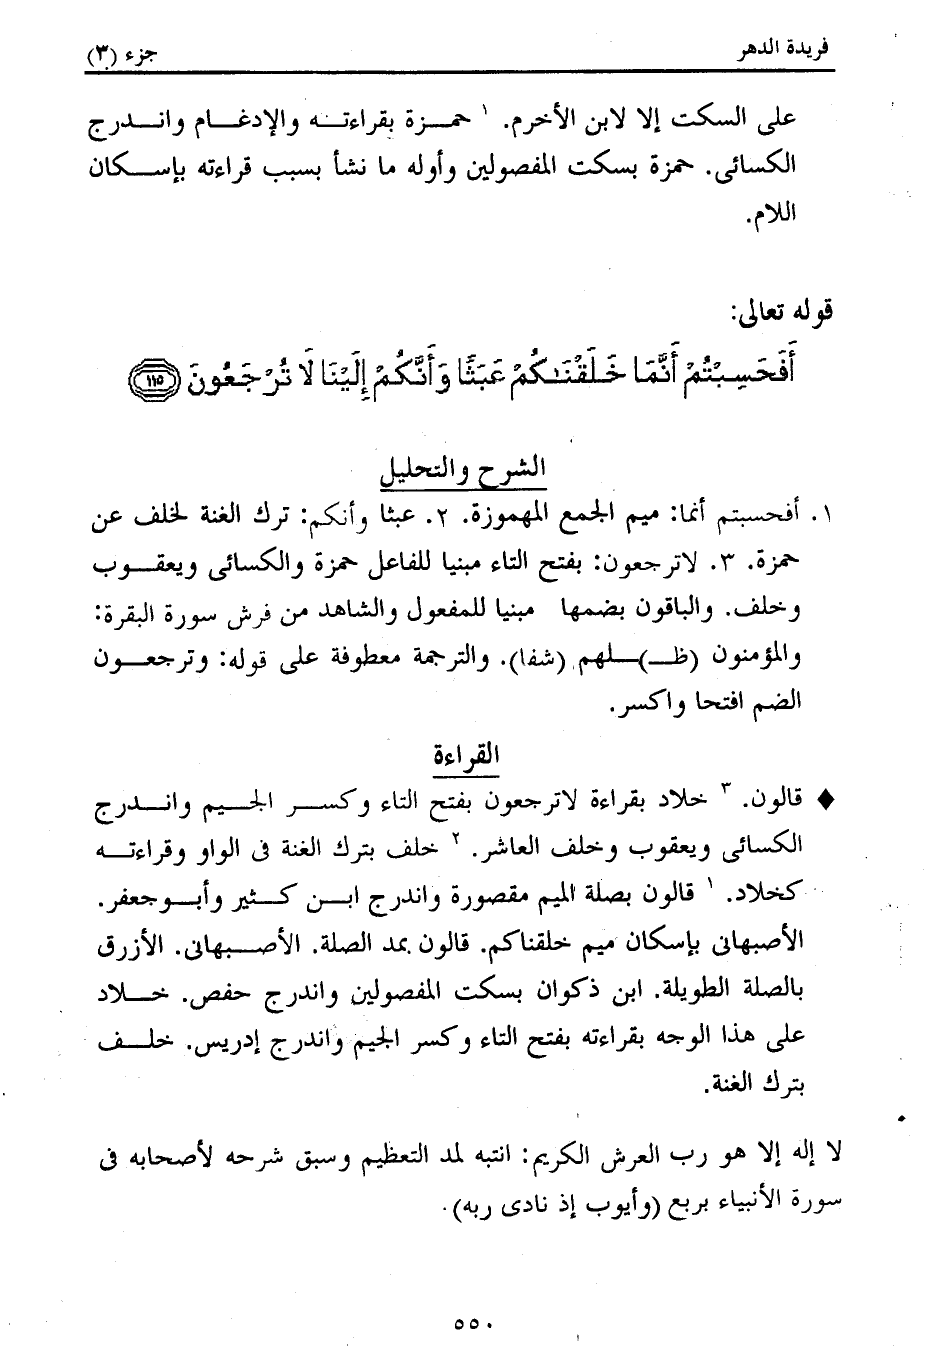 فريدة الدهر
جزء (٣)
على السكت إلا لابن الأخرم. ١ حمزة بقراءته والإدغام واندرج
الكسائى. حمزة بسكت المفصولين وأوله ما نشأ بسبب قراءته بإسكان
اللام.
قوله تعالى:
أَفَحَسِبْتُمْ أَنَّمَا خَلَقْنَـٰكُمْ عَبَثًا وَأَنَّكُمْ إِلَيْنَا لَا تُرْجَعُونَ ١١٥
الشرح والتحليل
١. أفحسبتم أنما: ميم الجمع المهموزة. ٢. عبثا وأنكم: ترك الغنة لخلف عن
حمزة. ٣. لاترجعون: بفتح التاء مبنيا للفاعل حمزة والكسائى ويعقوب
وخلف. والباقون بضمها مبنيا للمفعول والشاهد من فرش سورة البقرة:
والمؤمنون (ظـ)ـلهم (شفا). والترجمة معطوفة على قوله: وترجعون
الضم افتحا واكسر.
القراءة
♦ قالون. ٣ خلاد بقراءة لاترجعون بفتح التاء وكسر الجيم واندرج
الكسائى ويعقوب وخلف العاشر. ٢ خلف بترك الغنة فى الواو وقراءته
كخلاد. ١ قالون بصلة الميم مقصورة واندرج ابن كثير وأبوجعفر.
الأصبهانى بإسكان ميم خلقناكم. قالون بمد الصلة. الأصبهانى. الأزرق
بالصلة الطويلة. ابن ذكوان بسكت المفصولين واندرج حفص. خلاد
على هذا الوجه بقراءته بفتح التاء وكسر الجيم واندرج إدريس. خلف
بترك الغنة.
لا إله إلا هو رب العرش الكريم: انتبه لمد التعظيم وسبق شرحه لأصحابه فى
سورة الأنبياء بربع (وأيوب إذ نادى ربه).
٥٥٠